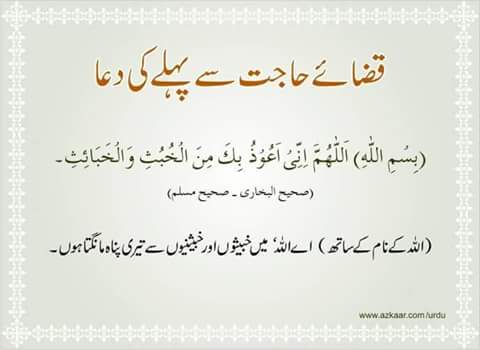 قضائے حاجت سے پہلے کی دعا
(بِسْمِ اللّٰهِ) اَللّٰهُمَّ اِنِّیْ اَعُوْذُ بِكَ مِنَ الْخُبُثِ وَالْخَبَائِثِ۔
(صحیح البخاری ۔ صحیح مسلم)
(اللہ کے نام کے ساتھ) اے اللہ میں خبیثوں اور خبیثنیوں سے تیری پناہ مانگتا ہوں۔
www.azkaar.com/urdu